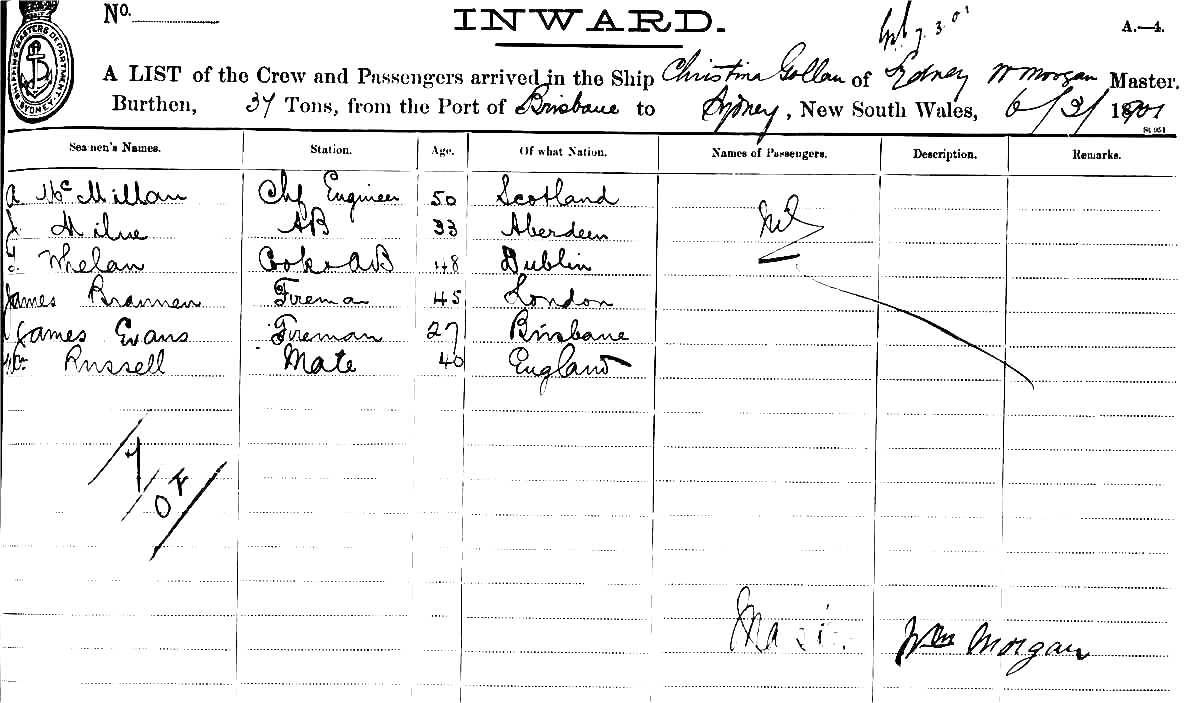 No.
INWARD.
7.3.01
A.—4.
SHIPPING MASTERS DEPARTMENT SYDNEY
A LIST of the Crew and Passengers arrived in the Ship Christina Gollan of Sydney W Morgan Master.
Burthen, 37 Tons, from the Port of Brisbane to Sydney, New South Wales, 6/3/1901
Seamen's Names. Station. Age. Of what Nation. Names of Passengers. Description. Remarks.
A McMillan Chf Engineer 50 Scotland Nil
J Milne AB 33 Aberdeen
Whelan Cook & AB 48 Dublin
James Brannen Fireman 45 London
James Evans Fireman 27 Brisbane
Wm Russell Mate 40 England
7
OF
Wm Morgan